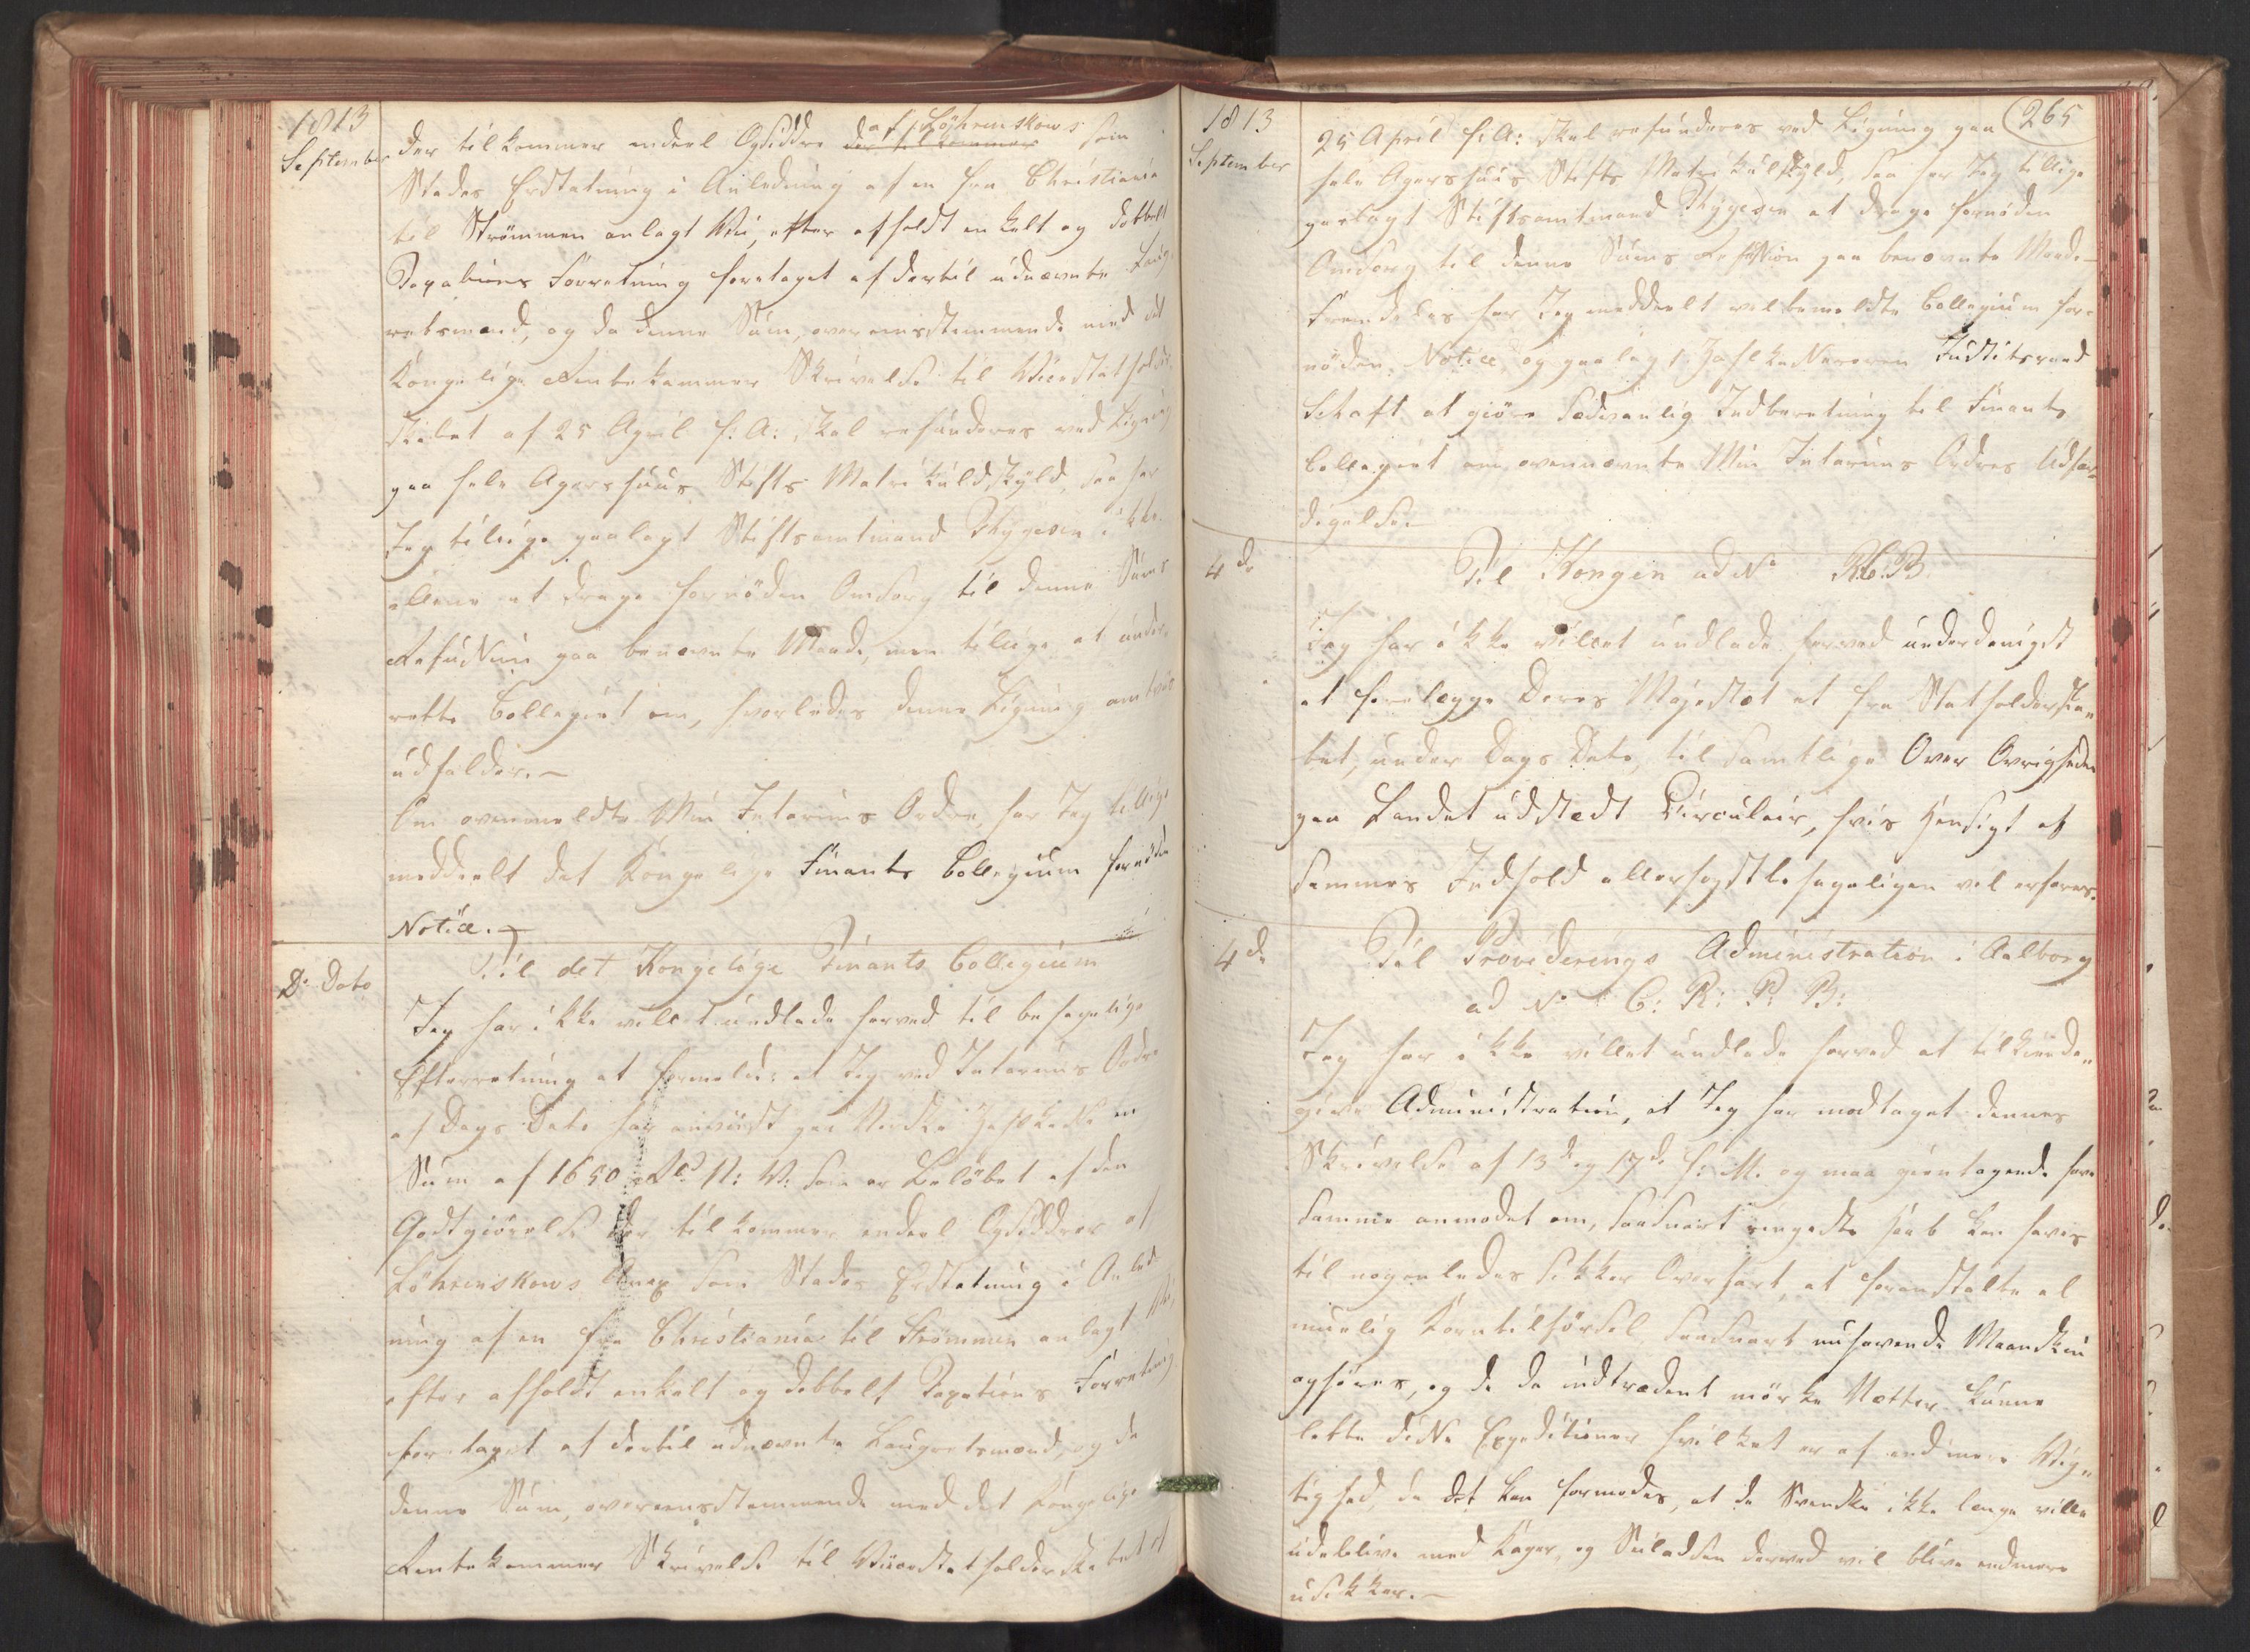 1813
September
der tilkommer endeel Opsiddere der til kommer af Løhrenskows som
Stades Erstatning i Anledning af en fra Christiania
til Strømmen anlagt Vei, efter afholdt enkelt og dobbelt
Taxations Forretning foretaget af dertil udnævnte Laug-
retsmænd, og da denne Sum, overeensstemmende med det
Kongelige Rentekammer Skrivelse til Vicestatholder-
skabet af 25 April f: A: skal refunderes ved Ligning
paa hele Agershuus Stifts Matriculdskyld, saa har
Jeg tillige paalagt Stiftsamtmand Thygeson ikke
allene at drage fornöden Omsorg til denne Sums
Refusion paa benævnte Maade, men tillige at under-
rette Collegiet om, hvorledes denne Ligning amtvis
udfalder.-
Om ovenmeldte Min Interims Ordre, har Jeg tillige
meddeelt det Kongelige Finants Collegium fornöden
Notice.-
D: Dato
Til det Kongelige Finants Collegium
Jeg har ikke villet undlade herved til behagelige
Efterretning at formelde: at Jeg ved Interims Ordre
af Dags Dato har anviist paa Norske Zahlkasse en
Sum af 1650 Rd N: V: som er Belöbet af den
Godtgiörelse der tilkommer endeel Opsiddere af
Löhrenskows Annex som Stades Erstatning i Anled-
ning af en fra Christiania til Strömmen anlagt Vei,
efter afholdt enkelt og dobbelt Taxations Forretning
foretaget af dertil udnævnte Laugretsmænd, og da
denne Sum, overeensstemmende med det Kongelige
Rentekammer Skrivelse til Vicestatholderskabet af
1813
September
265
25 April f: A: skal refunderes ved Ligning paa
hele Agershuus Stifts Matriculskyld, saa har Jeg tillige
paalagt Stiftsamtmand Thygeson at drage fornöden
Omsorg til denne Sums Refusion paa benævnte Maade-
Fremdeles har Jeg meddeelt velbemeldte Collegium for-
nöden Notice, og paalagt Zahlkasserer Justitsraad
Schaft at giöre sædvanlig Indberetning til Finants
Collegiet om ovennævnte Min Interims Ordres Udfær-
digelse.-
4de
Til Kongen ad No R.C.B.
Jeg har ikke villet undlade herved underdanigst
at forelægge Deres Majestæt et fra Statholderska-
bet, under Dags Dato, til samtlige Over Øvrigheder
paa Landet udstædt Circulair, hvis Hensigt af
sammes Indhold allerhøystbehageligen vil erfares.
4de
Til Provideerings Administration i Aalborg
ad No C: R: P: B:
Jeg har ikke villet undlade herved at tilkiende-
give Administration, at Jeg har modtaget dennes
Skrivelse af 13de og 17de f: M. og maa gientagende have
samme anmodet om, saasnart ringeste Haab kan haves
til nogenledes sikker Overfart, at foranstalte al
muelig Korntilförsel saasnart nuhavende Maaneskin
ophörer, og de da indtrædent mörke Nætter kunne
lette disse Expeditioner hvilket er af end mere Vig-
tighed, da det kan formodes, at de Svenske ikke længe ville
udeblive med Kaper, og Seiladsen derved vil blive endmere
usikker.-